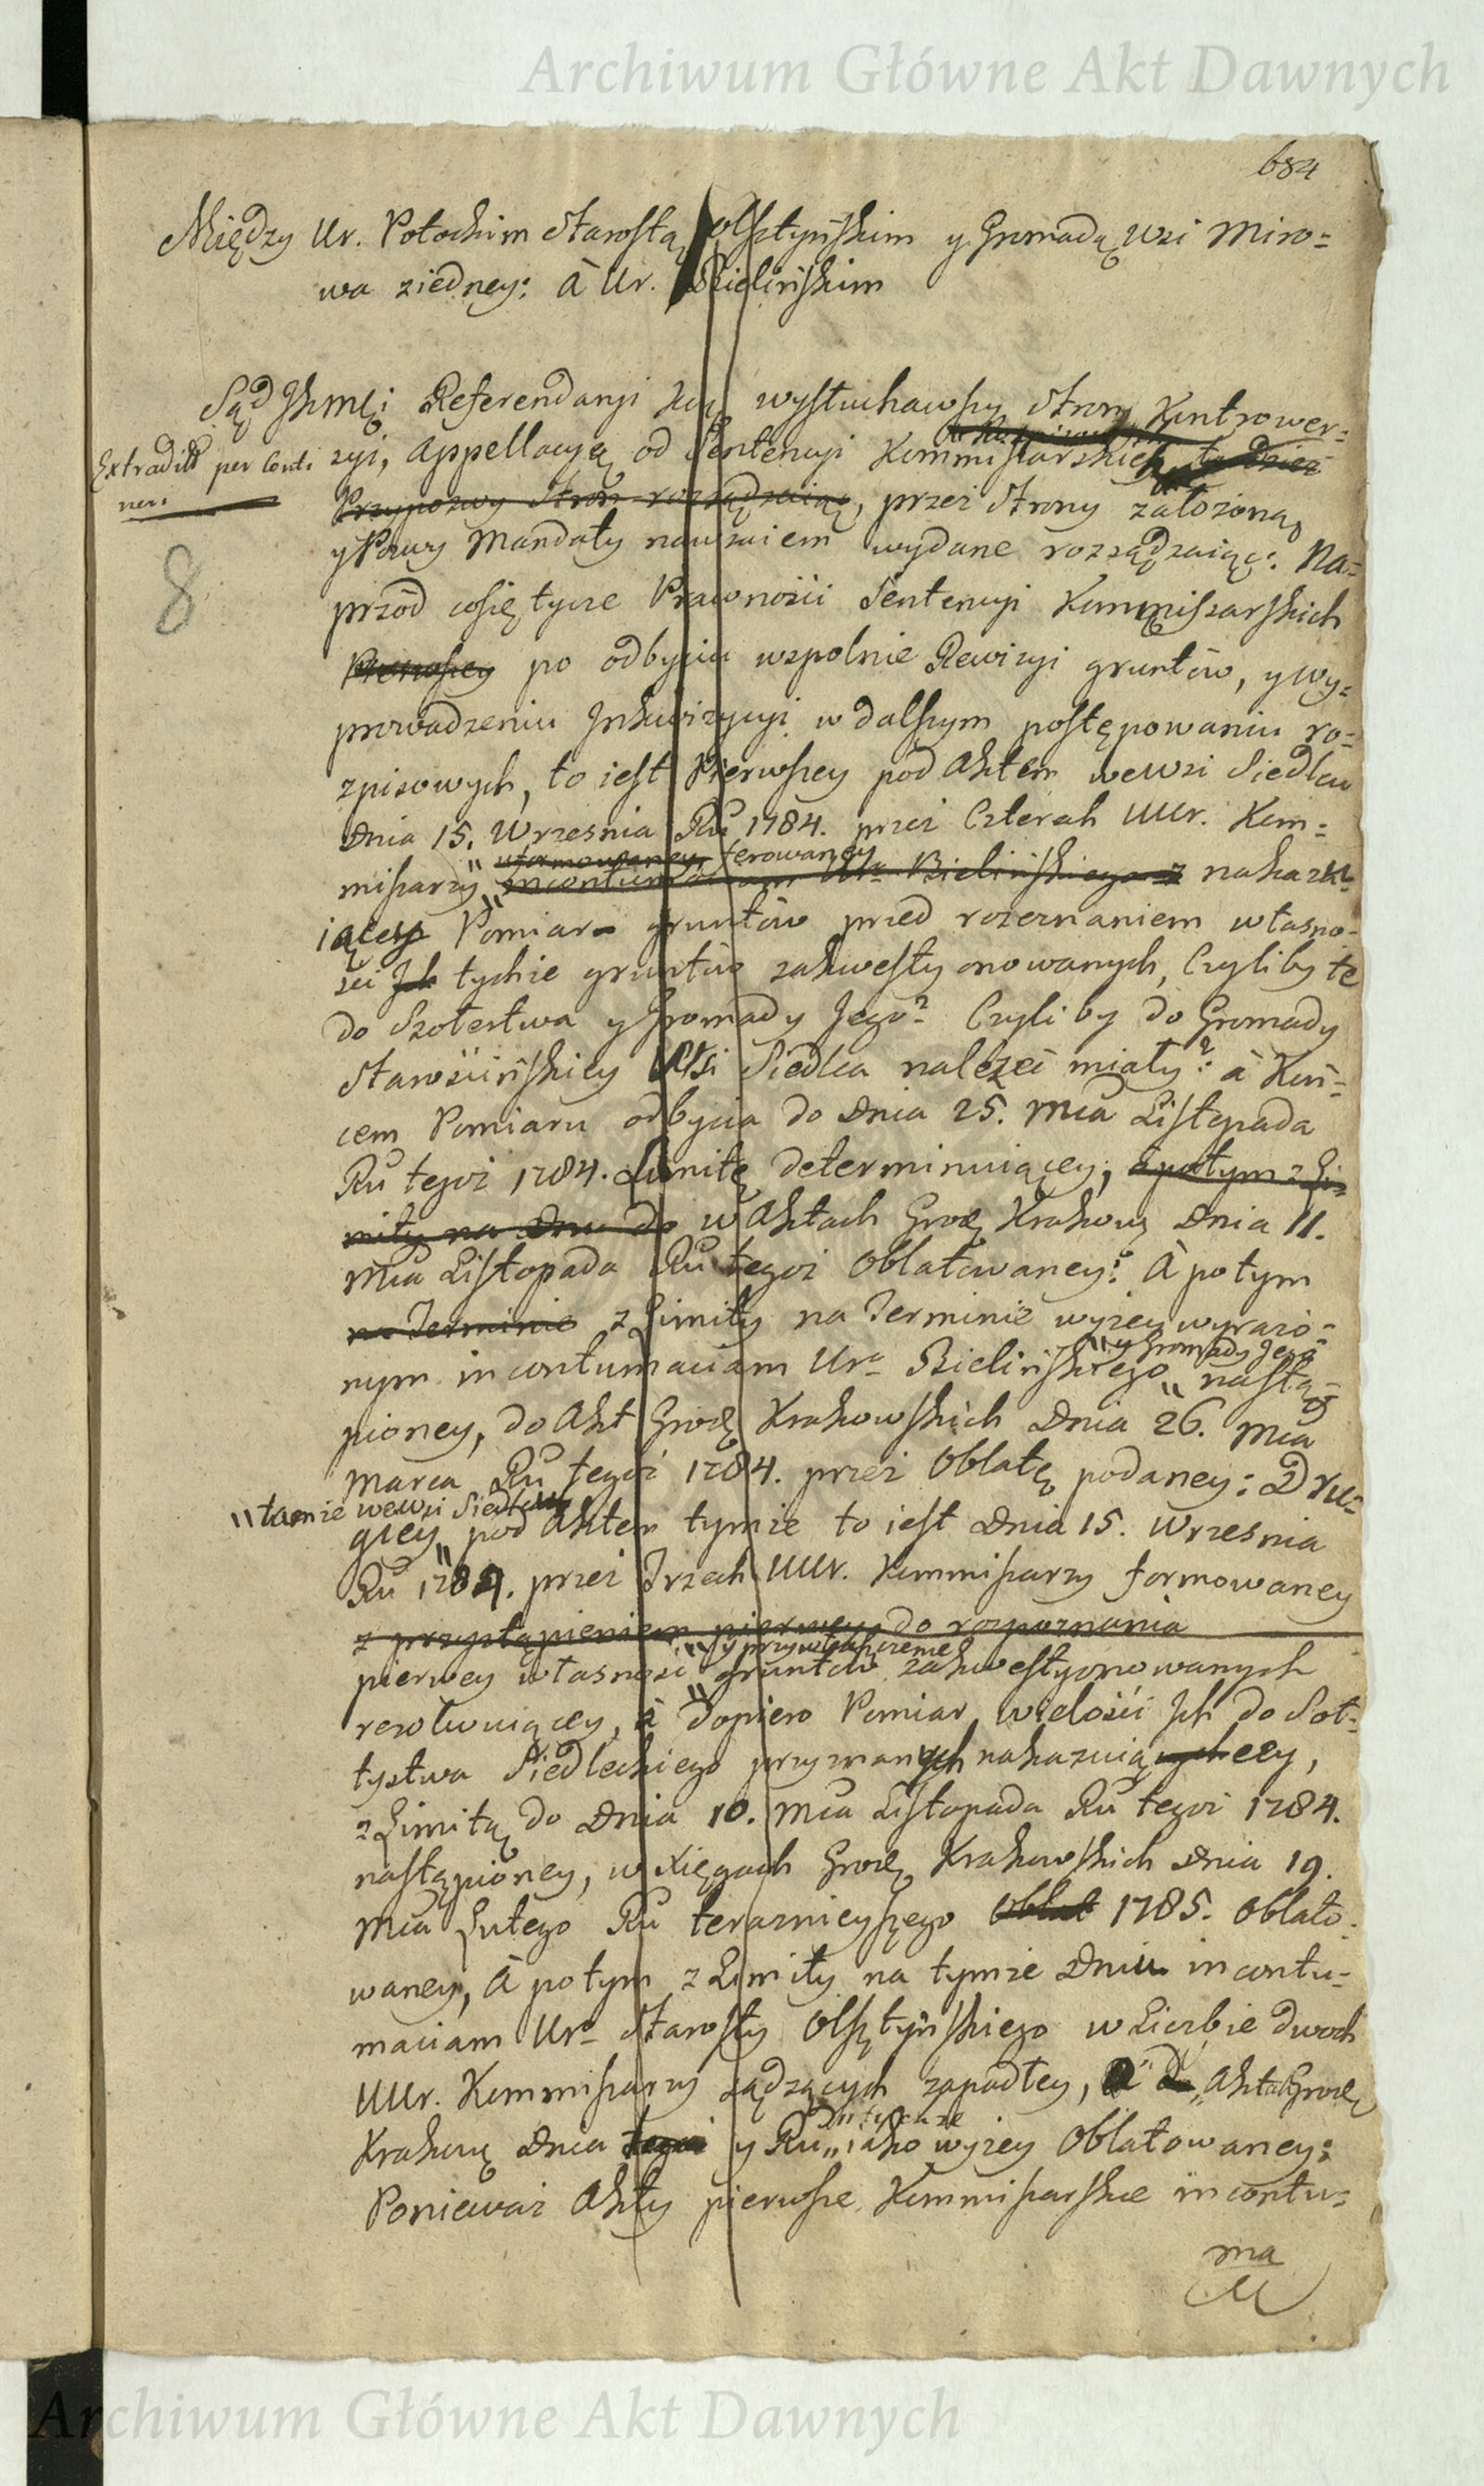 Archiwum Główne Akt Dawnych
684
Między Ur. Potockim Starostą Olsztyńskim y Gromadą Wsi Miro=
wa ziedney: à Ur. Bielińskim
Sąd JKmći Referendaryi Kcy wysłuchawszy Strony Kontrower=
Extradit per Conti
nen.
zyi, Appellacyą od Sentencyi Kommissarskich to dzież
Przypozwy Stron rozsądzaiąc, przez Strony założoną,
y Pozwy Mandaty nawzaiem wydane rozsądzaiąc: Na=
8
przód co się tycze Prawności Sentencyi Kommiszarskich
Pierwszey po odbyciu wspolnie Rewizyi gruntów, y wy=
prowadzeniu Inkwizycyi w dalszym postępowaniu ro=
zpisowych, to iest Pierwszey pod Aktem we Wsi Siedlcu
Dnia 15. Wrzesnia Ru 1784. przez Czterech UUr. Kom=
uformowaney ferowaney
missarzy in contumaciam Ura Bielińskiego z nakazu=
iącey Pomiar gruntów przed rozeznaniem własno=
ści Ich tychże gruntów zakwestyonowanych, Czyliby te
do Szołectwa y Gromady Jego? Czyliby do Gromady
Starościńskiey Wsi Siedlca należeć miały? à Koń=
cem Pomiaru odbycia do Dnia 25. Mca Listopada
Ru tegoż 1784. Limitę determinuiącey, à potym z Li=
mity na Dniu do w Aktach Grodz Krakow Dnia 11.
Mca Listopada Ru tegoż Oblatowaney: À potym
na Terminie z Limity na Terminie wyżey wyrażo=
y Gromady Jego
nym in contumaciam Ura Bielińskiego nastą=
pioney, do Akt Grodz Krakowskich Dnia 26. Mca
Marca Ru tegoż 1784. przez Oblatę podaney: Dru=
tamże we Wsi Siedlcu
giey pod Aktem tymże to iest Dnia 15. Wrzesnia
Ru 1784. przez Trzech UUr. Kommissarzy formowaney
z przystąpieniem pierwey do rozpoznania
y przywłaszczenie
pierwey własności gruntów zakwestyonowanych
rezolwuiącey, à dopiero Pomiar wielości Ich do Soł=
tystwa Siedleckiego przyznanych nakazuiącey,
z Limitą do Dnia 10. Mca Listopada Ru tegoż 1784.
nastąpioney, w Xięgach Grodz Krakowskich Dnia 19.
Mca Lutego Ru teraznieyszego Oblat 1785. Oblato=
waney, À potym z Limity na tymże Dniu in contu=
maciam Ura Starosty Olsztyńskiego w Liczbie dwoch
UUr. Kommissarzy sądzących zapadłey, à w Aktach Grodz
Krakow Dnia tegoż y Ru iako wyżey Oblatowaney:
Ponieważ Akty pierwsze Kommissarskie in contu=
ma
Archiwum Główne Akt Dawnych